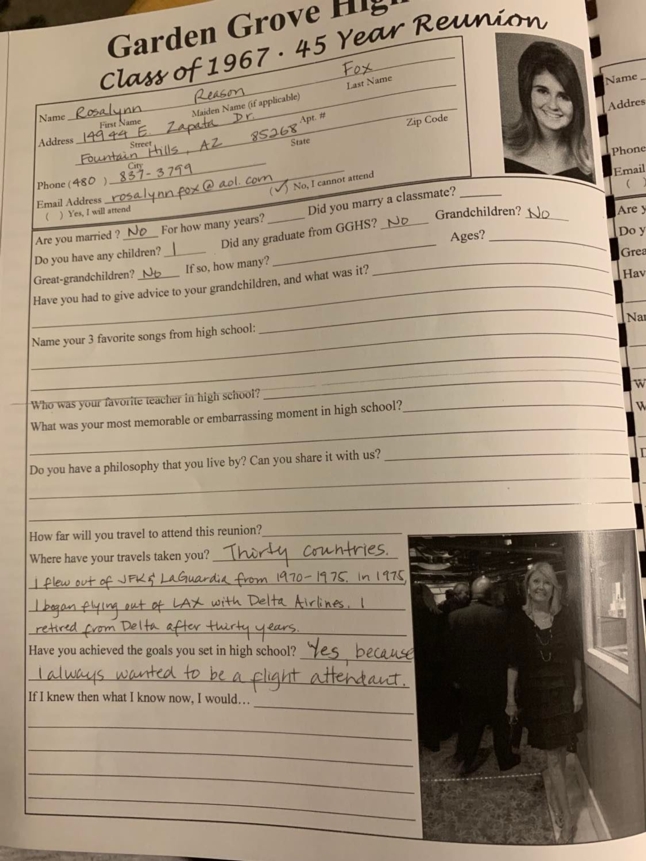 Garden Grove High
Class of 1967 · 45 Year Reunion
Name Rosalynn Reason Fox
First Name Maiden Name (if applicable) Last Name
Address 14944 E. Zapata Dr.
Street Apt. #
Fountain Hills, AZ 85268
City State Zip Code
Phone (480) 837-3799
Email Address rosalynnfox@aol.com
( ) Yes, I will attend (✓) No, I cannot attend
Are you married? No For how many years? Did you marry a classmate?
Do you have any children? 1 Did any graduate from GGHS? No Grandchildren? No
Great-grandchildren? No If so, how many? Ages?
Have you had to give advice to your grandchildren, and what was it?
Name your 3 favorite songs from high school:
Who was your favorite teacher in high school?
What was your most memorable or embarrassing moment in high school?
Do you have a philosophy that you live by? Can you share it with us?
How far will you travel to attend this reunion?
Where have your travels taken you? Thirty countries.
I flew out of JFK & LaGuardia from 1970-1975. In 1975,
I began flying out of LAX with Delta Airlines. I
retired from Delta after thirty years.
Have you achieved the goals you set in high school? Yes, because
I always wanted to be a flight attendant.
If I knew then what I know now, I would...
Name
Addres
Phone
( )
Email
Are y
Do y
Grea
Hav
Nar
W
W